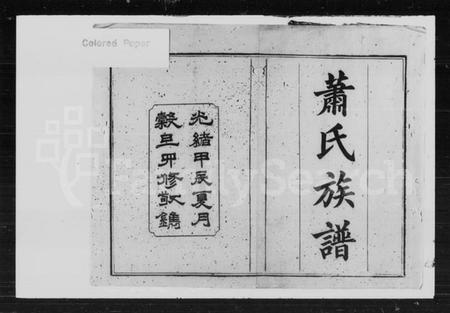 Colored Paper
蕭氏族譜
光緒甲辰夏月
穀旦四修敬鐫
FamilySearch